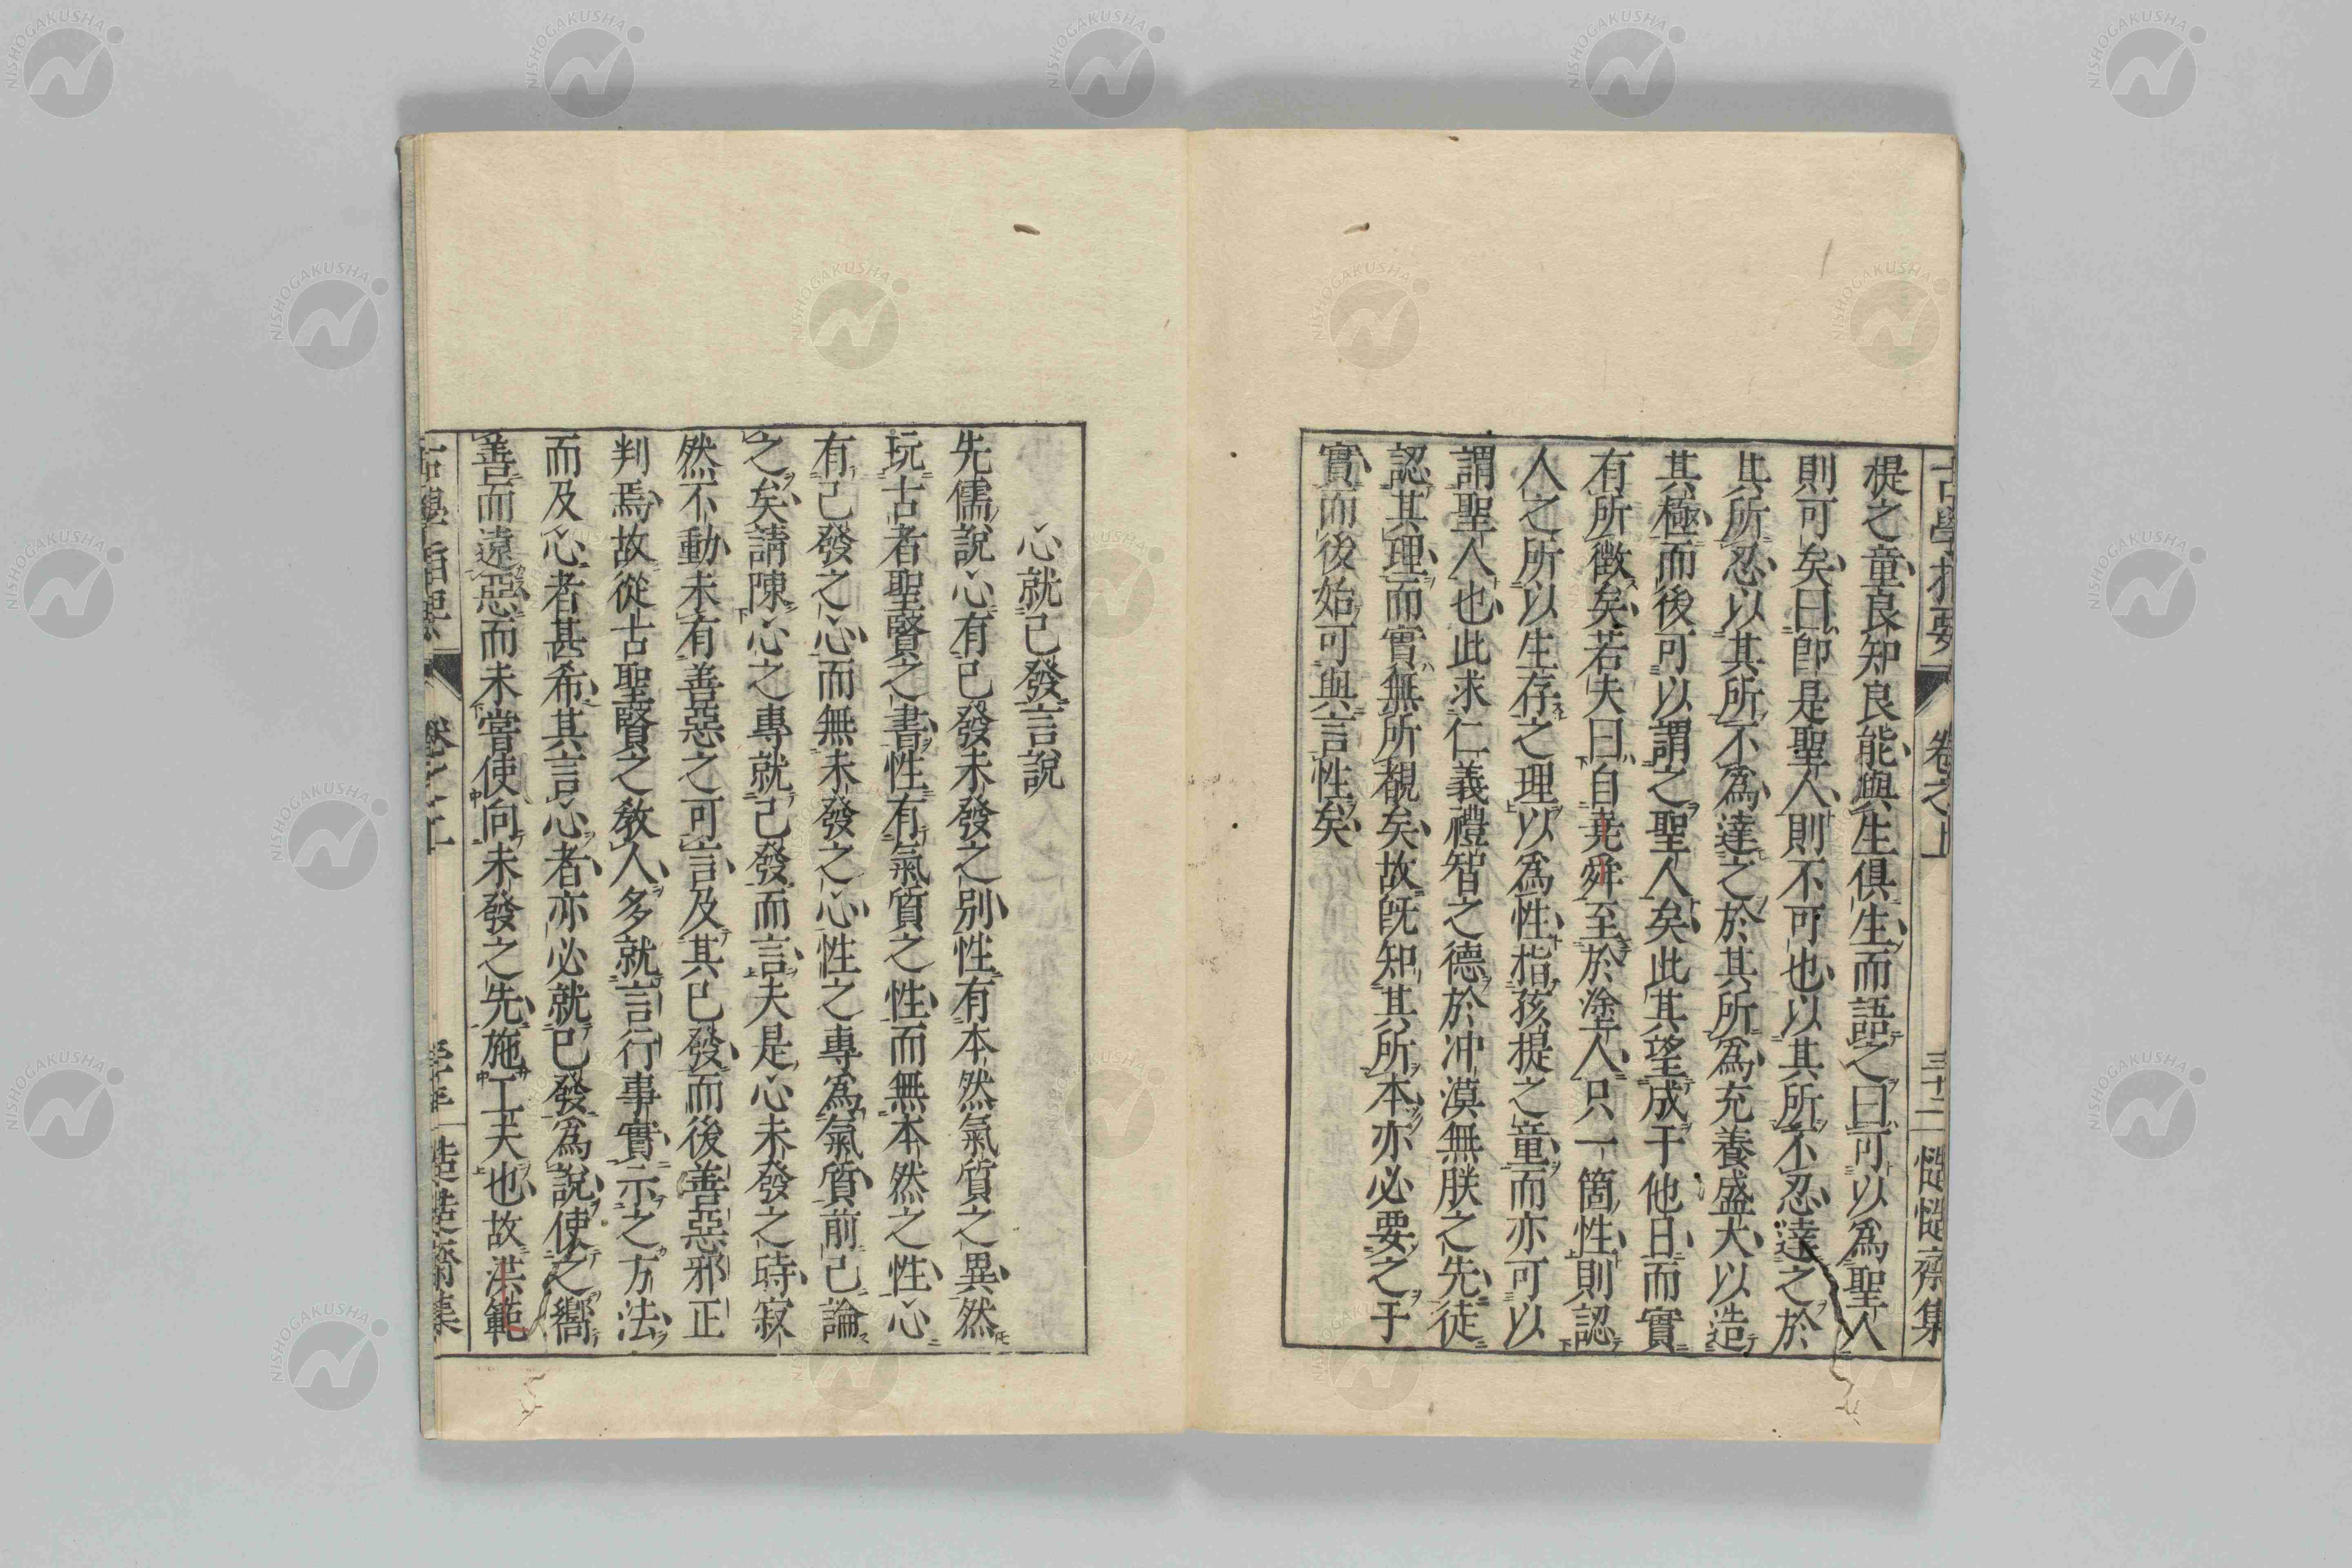 古學指要 卷之上 三十二 慥慥齋集
提之童良知良能與生俱生而語之曰可以爲聖人
則可矣曰卽是聖人則不可也以其所不忍達之於
其所忍以其所不為達之於其所為充養盛大以造
其極而後可以謂之聖人矣此其望成于他日而實
有所徵矣若夫曰自堯舜至於塗人只一箇性則認
人之所以生存之理以爲性指孩提之童而亦可以
謂聖人也此求仁義禮智之德於冲漠無朕之先徒
認其理而實無所覩矣故旣知其所本亦必要之于
實而後始可與言性矣
心就已發言說
先儒說心有已發未發之別性有本然氣質之異然
玩古者聖賢之書性有氣質之性而無本然之性心
有已發之心而無未發之心性之專為氣質前已論
之矣請陳心之專就已發而言夫是心未發之時寂
然不動未有善惡之可言及其已發而後善惡邪正
判焉故從古聖賢之教人多就言行事實示之方法
而及心者甚希其言心者亦必就已發爲說使之嚮
善而遠惡而未嘗使向未發之先施工夫也故洪範
古學指要 卷之上
NISHOGAKUSHA